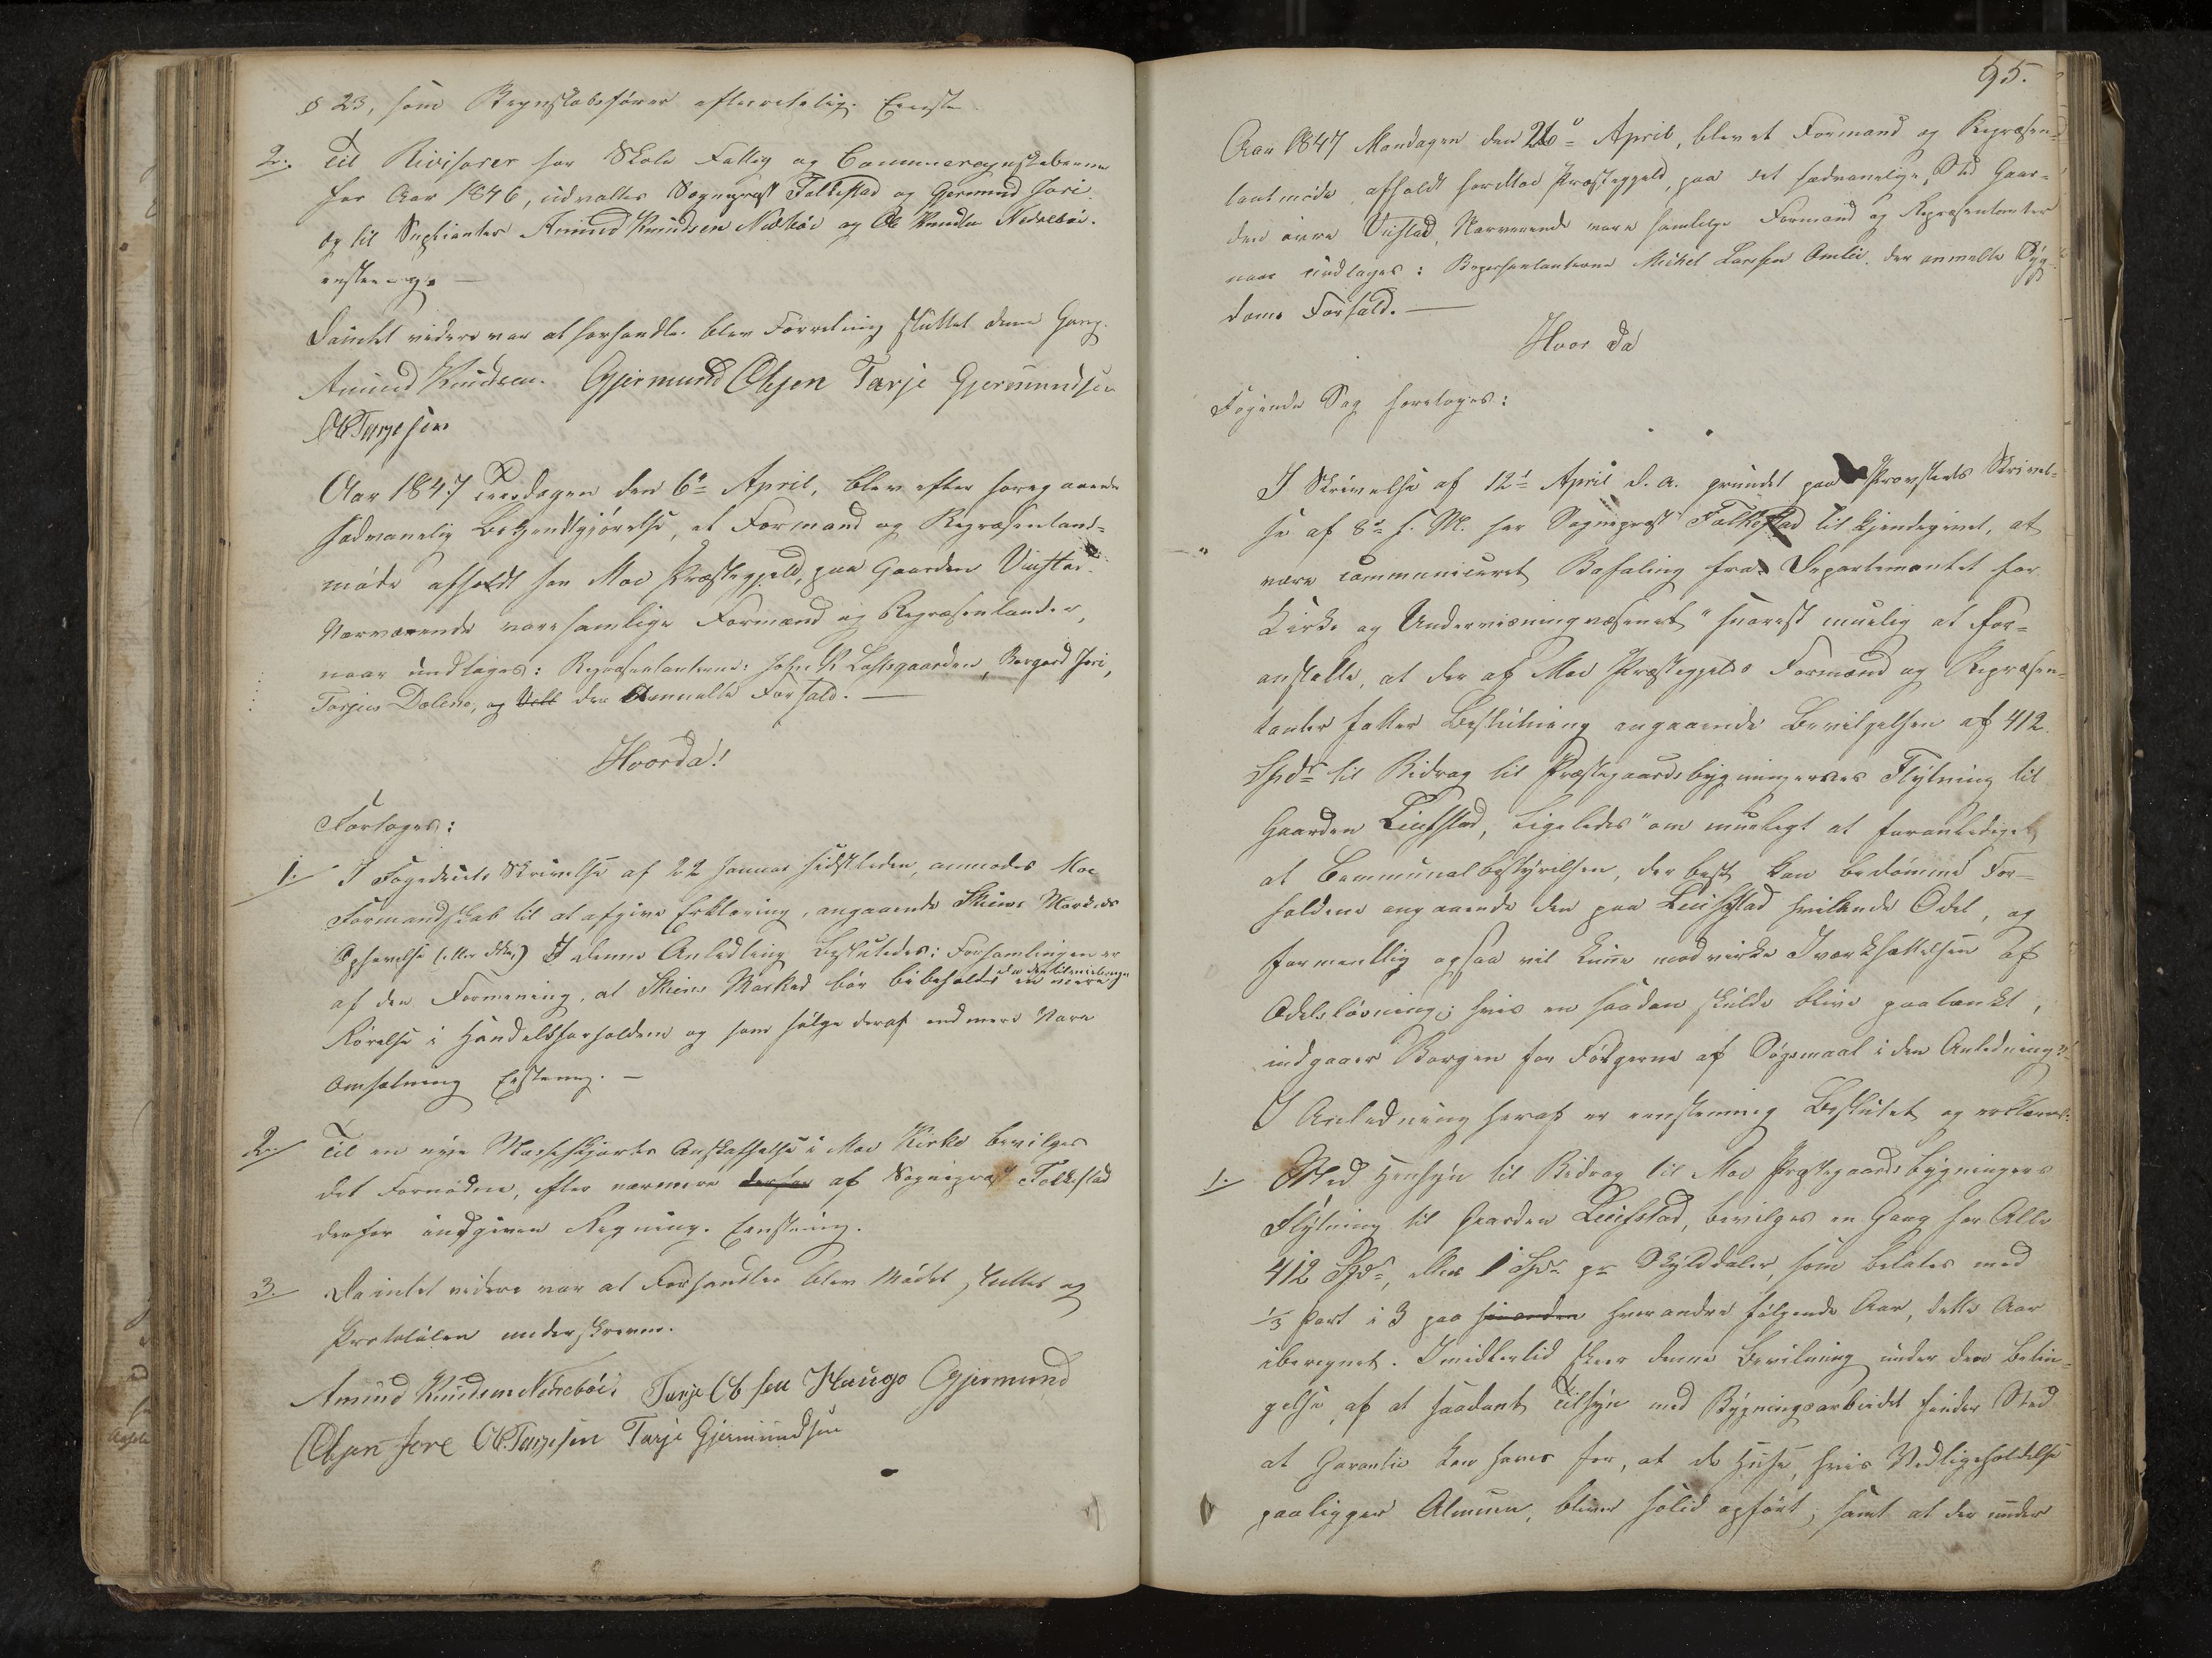 § 23, som Regnskabsfører efterretelig. Eenst.
2. Til Revisorer for Skole Fattig og Communeregnskaberne
for Aar 1846, udvaltes Sognepræst Falkestad og Gjermund Jore
og til Suplianter Amund Knudsen Nedrebøe og Ole Knudsen Nedrebøe.
enstemig. —
Da intet videre var at forhandle blev Forretning sluttet denne Gang.
Amund Knudsen. Gjermund Olsen Tarje Gjermundsen
Ol Tarjesen
Aar 1847 Tirsdagen den 6te April, blev efter foregaaende
sædvanelig Bekjendtgjørelse, et Formand og Repræsentant-
møde afholdt for Moe Præstegjeld, paa Gaarden Vistad.
Nærværende vare samtlige Formænd og Repræsentanter,
naar undtages: Repræsentanterne: John K Laftsgaarden, Borgard Jore,
Torjus Dalene, og der anmeldte Forfald. —
Hvorda!
Foretoges:
1. I Fogederiets Skrivelse af 22 Januar sidstleden, anmodes Moe
Formandskab til at afgive Erklæring, angaaende Skiens Markeds
Ophævelse (eller ikke,) I denne Anledning Besluttedes: Forsamlingen er
af den Formening, at Skiens Marked bør bibeholdes da det tilveiebringer en mere
Rørelse i Handelsforholdene og som følge deraf end mere Vare
Omsætning Enstemig. —
2. Til en nye Messeskjortes Anskaffelse i Moe Kirke bevilges
det Fornødne, efter nærmere derfor af Sognepræst Falkestad
derfor indgiven Regning. Eenstemig.
3. Da intet videre var at Forhandle blev Mødet sluttet og
Protokolen underskreven.
Amund Knudsen Nedrebøe. Tarje Olsen Haugo Gjermund
Olsen Jore Ol Tarjesen Tarje Gjermundsen
95.
Aar 1847 Mandagen den 26de April, blev et Formand og Repræsen-
tantmøde, afholdt for Moe Præstegjeld, paa det sædvanelige Sted Gaar-
den øvre Vistad, Nærværende vare samtlige Formænd og Repræsentanter
naar undtages: Repræsentanterne Mikkel Larssen Omlie, der anmeldte Syg-
doms Forfald. —
Hvor da
Følgende Sag foretoges:
I Skrivelse af 12te April d. A. grundet paa Provstiets Skrivel-
se af 8de s. M. har Sognepræst Falkestad tilkjendegivet, at
være communiceret Befaling fra Departementet for
Kirke og Undervisningvæsenet "snarest muelig at for-
anstalte, at der af Moe Præstegjelds Formænd og Repræsen-
tanter fattes Beslutning angaaende Bevilgelsen af 412
Spdr til Bidrag til Præstegaardsbygningernes Flytning til
Gaarden Liufstad, ligeledes "om mueligt at foranlediget,
at Communalbestyrelsen, der best kan bedømme For-
holdene angaaende den paa Liufstad hvilende Odel, og
formentlig ogsaa vil kunne modvirke Iværksættelsen af
Odelsløsning; hvis en saadan skulde blive paatænkt,
indgaaer Borgen for Følgerne af Søgsmaal i den Anledning."
I Anledning heraf er eenstemmig Besluttet og erklæret:
1. Med Hensyn til Bidrag til Moe Præstegaards bygningers
Flytning til Gaarden Liufstad, bevilges en Gang for Alle
412 Spdr, eller 1 Spdr pr Skylddaler, som betales med
1/3 Part i 3 paa hinanden hverandre følgende Aar, dette Aar
iberegnet. Imidlertid skeer denne Bevilning under den Betin-
gelse, af at saadant Tilsyn med Bygningsarbeidet finder Sted
at Garantie kan haves for, at de Huse, hvis Vedligeholdelse
paaligger Almuen, bliver solid opført, samt at der under